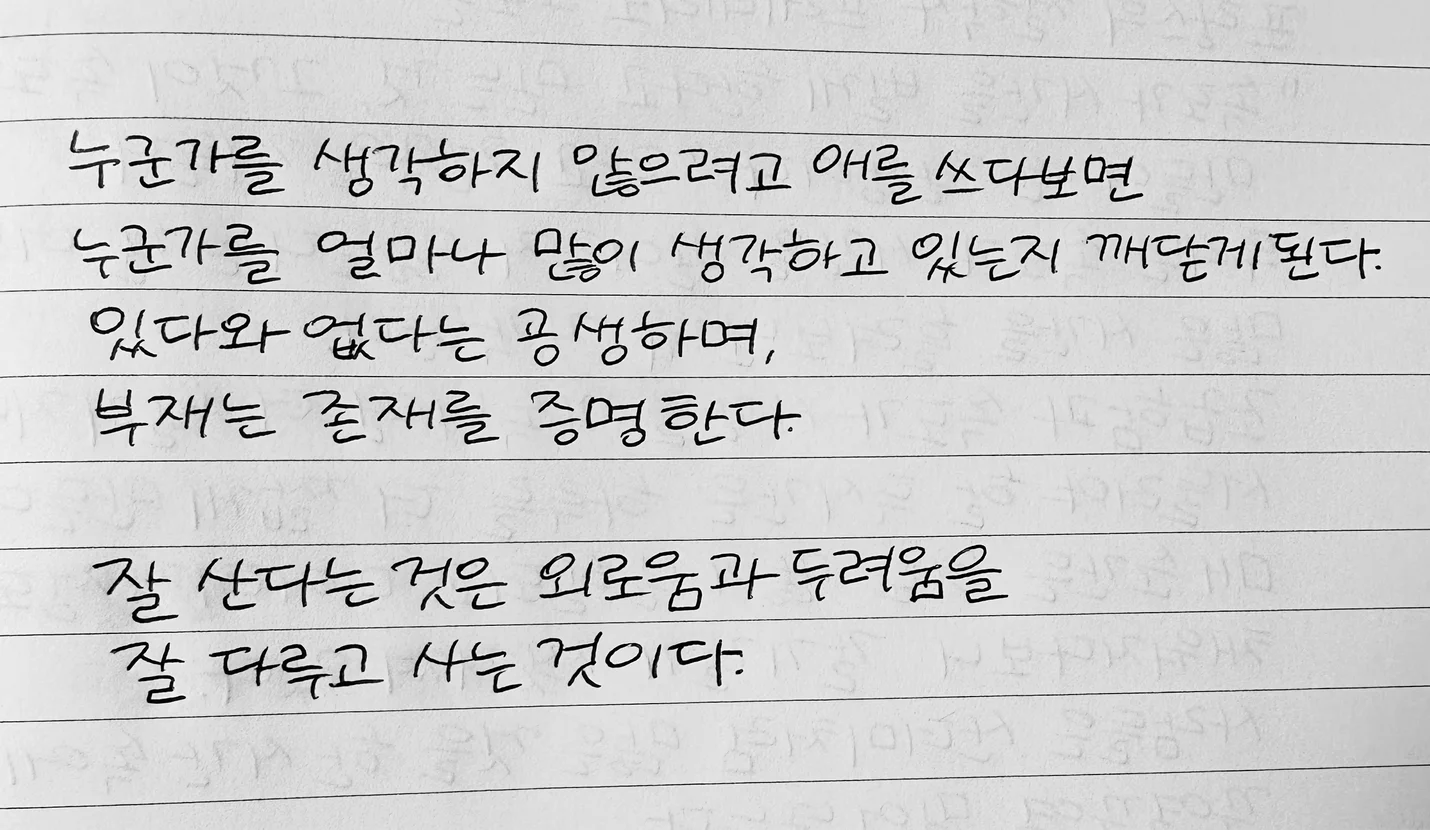 누군가를 생각하지 않으려고 애를 쓰다보면
누군가를 얼마나 많이 생각하고 있는지 깨닫게된다.
있다와 없다는 공생하며,
부재는 존재를 증명한다.
잘 산다는 것은 외로움과 두려움을
잘 다루고 사는 것이다.